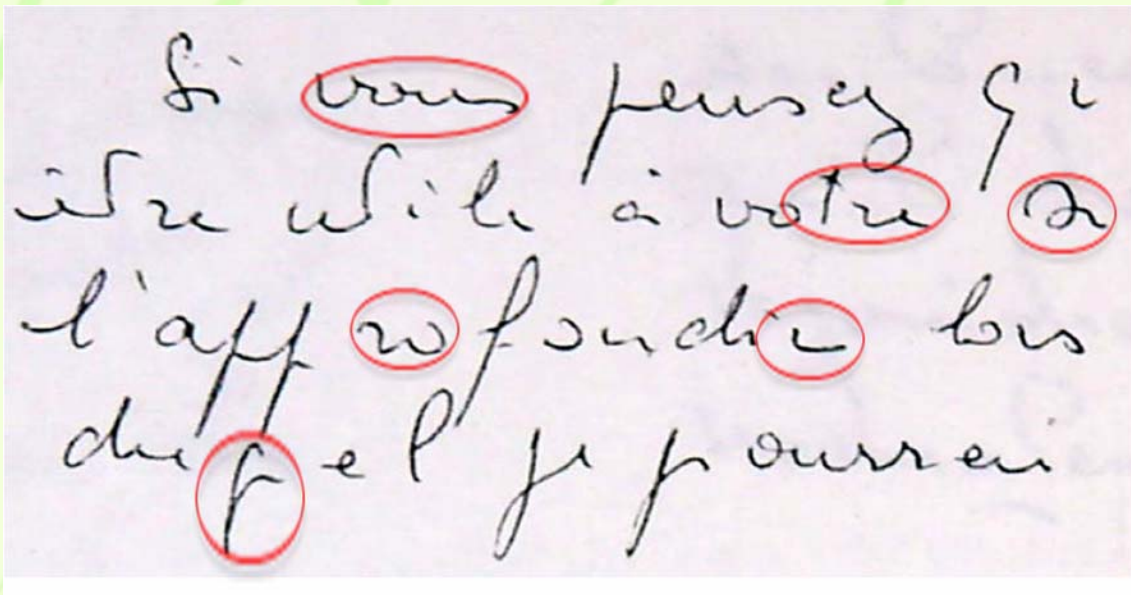 Si vous pensez qu
être utile à votre se
l'approfondir lors
duquel je pourrai